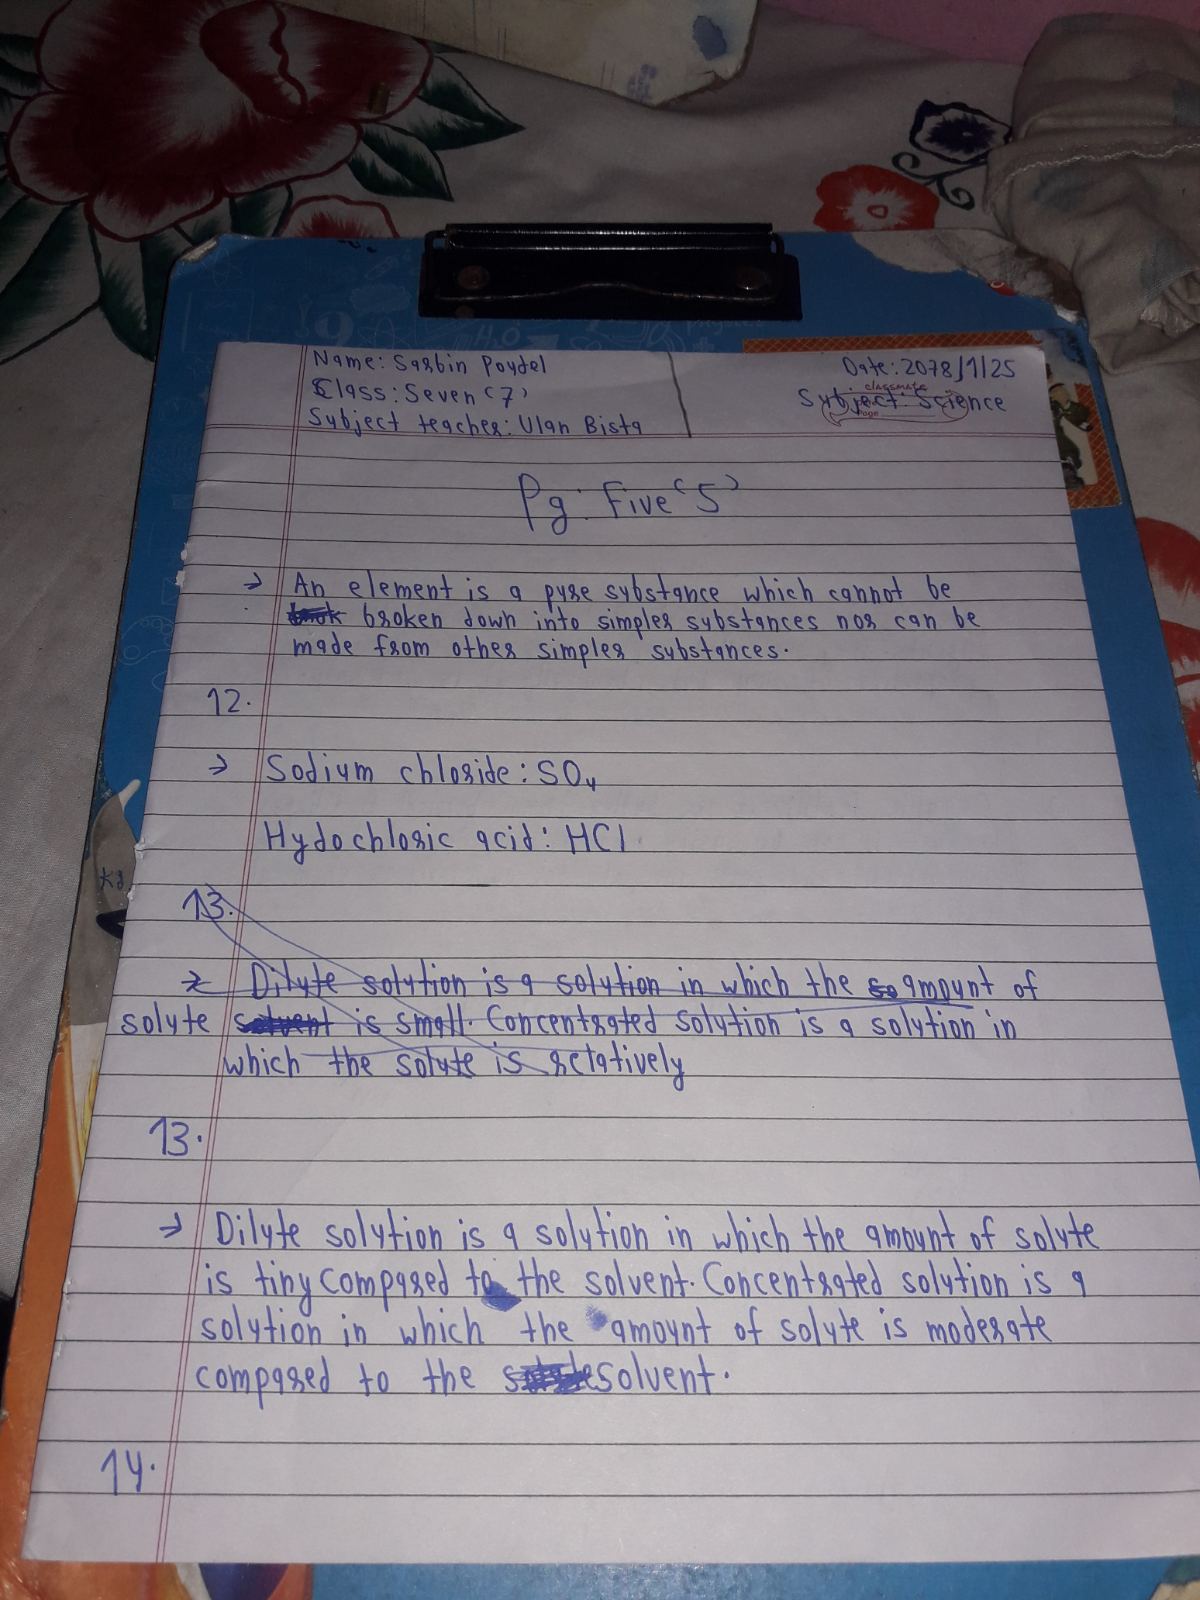 Name: Sarbin Poudel
Class: Seven (7)
Subject teacher: Ulan Bista
Date: 2078/1/25
classmate
Subject: Science
Page
Pg: Five (5)
→ An element is a pure substance which cannot be
broken down into simpler substances nor can be
made from other simpler substances.
12.
→ Sodium chloride: SO4
Hydochloric acid: HCl
13.
→ Dilute solution is a solution in which the so amount of
solute solvent is small. Concentrated solution is a solution in
which the solute is relatively
13.
→ Dilute solution is a solution in which the amount of solute
is tiny compared to the solvent. Concentrated solution is a
solution in which the amount of solute is moderate
compared to the solvent.
14.